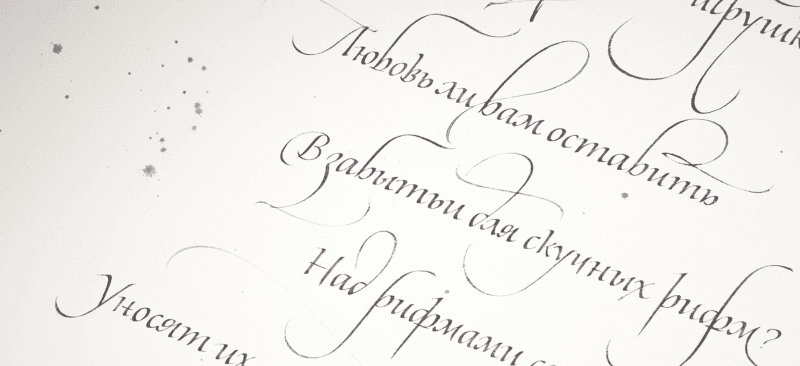 Любовь ли вам оставить
В забытьи для скучных рифм?
Над рифмами
Уносят их